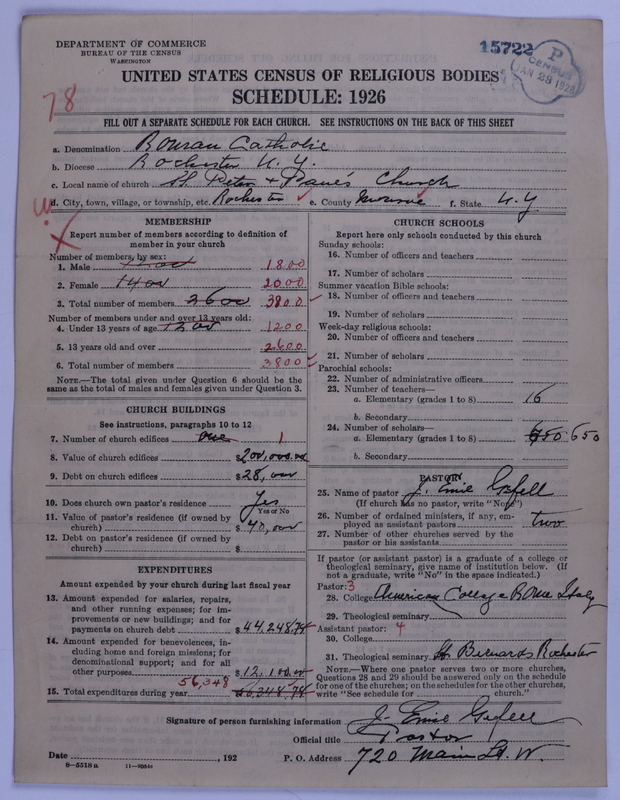 DEPARTMENT OF COMMERCE
BUREAU OF THE CENSUS
WASHINGTON
15722
P
CENSUS
JAN 28 1928
UNITED STATES CENSUS OF RELIGIOUS BODIES
SCHEDULE: 1926
78
FILL OUT A SEPARATE SCHEDULE FOR EACH CHURCH. SEE INSTRUCTIONS ON THE BACK OF THIS SHEET
a. Denomination Roman Catholic
b. Diocese Rochester N.Y.
c. Local name of church St. Peter & Paul's Church
d. City, town, village, or township, etc. Rochester e. County Monroe f. State N.Y
MEMBERSHIP
Report number of members according to definition of member in your church
Number of members, by sex:
1. Male 1800
2. Female 1400 2000
3. Total number of members 2600 3800
Number of members under and over 13 years old:
4. Under 13 years of age 1200 1200
5. 13 years old and over 2600
6. Total number of members 3800
NOTE.—The total given under Question 6 should be the same as the total of males and females given under Question 3.
CHURCH BUILDINGS
See instructions, paragraphs 10 to 12
7. Number of church edifices one 1
8. Value of church edifices $200,000.00
9. Debt on church edifices $28,000
10. Does church own pastor's residence Yes
Yes or No
11. Value of pastor's residence (if owned by church) $40,000
12. Debt on pastor's residence (if owned by church) $
EXPENDITURES
Amount expended by your church during last fiscal year
13. Amount expended for salaries, repairs, and other running expenses; for improvements or new buildings; and for payments on church debt $44,248.78
14. Amount expended for benevolences, including home and foreign missions; for denominational support; and for all other purposes $12,100.00
56,348
15. Total expenditures during year $56,348.78
CHURCH SCHOOLS
Report here only schools conducted by this church
Sunday schools:
16. Number of officers and teachers
17. Number of scholars
Summer vacation Bible schools:
18. Number of officers and teachers
19. Number of scholars
Week-day religious schools:
20. Number of officers and teachers
21. Number of scholars
Parochial schools:
22. Number of administrative officers
23. Number of teachers—
a. Elementary (grades 1 to 8) 16
b. Secondary
24. Number of scholars—
a. Elementary (grades 1 to 8) 650 650
b. Secondary
PASTOR
25. Name of pastor J. Emil Gefell
(If church has no pastor, write "None")
26. Number of ordained ministers, if any, employed as assistant pastors two
27. Number of other churches served by the pastor or his assistants
If pastor (or assistant pastor) is a graduate of a college or theological seminary, give name of institution below. (If not a graduate, write "No" in the space indicated.)
Pastor: 3
28. College American College Rome Italy
29. Theological seminary
Assistant pastor: 4
30. College
31. Theological seminary St. Bernards Rochester
NOTE.—Where one pastor serves two or more churches, Questions 28 and 29 should be answered only on the schedule for one of the churches; on the schedules for the other churches, write "See schedule for church."
Signature of person furnishing information J. Emil Gefell
Official title Pastor
Date , 192 P. O. Address 720 Main St. W.
8—5518a